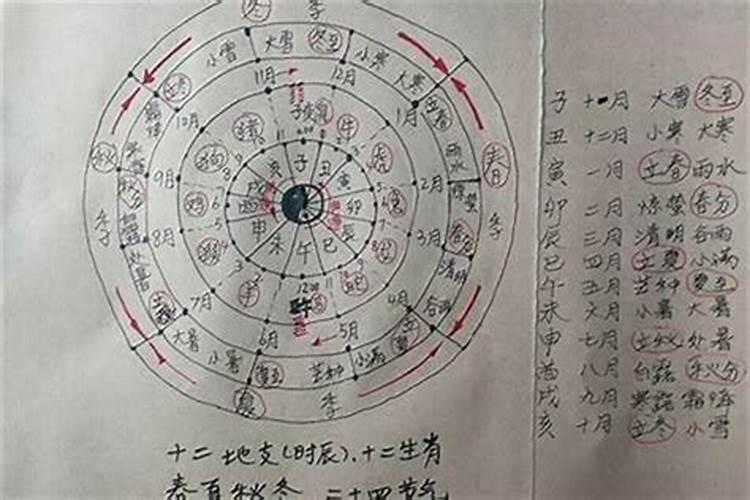 冬 季
小雪 大雪 冬至 小寒 大寒
立冬 立春
11月 12月
10月 1月
子 丑 寅 卯 辰 巳 午 未 申 酉 戌 亥
鼠 牛 虎 兔
猪 狗 鸡 猴 羊
秋 季
春 季
9月 2月
8月 3月
7月 4月
6月 5月
雨水 惊蛰 春分 清明 谷雨
秋分 处暑
大暑 小暑 夏至 芒种 小满 立夏
夏 季
子 十一月 大雪 冬至
丑 十二月 小寒 大寒
寅 一月 立春 雨水
卯 二月 惊蛰 春分
辰 三月 清明 谷雨
巳 四月 立夏 小满
午 五月 芒种 夏至
未 六月 小暑 大暑
申 七月 立秋 处暑
酉 八月 白露 秋分
戌 九月 寒露 霜降
亥 十月 立冬 小雪
十二地支(时辰)、十二生肖
春夏秋冬 二十四节气